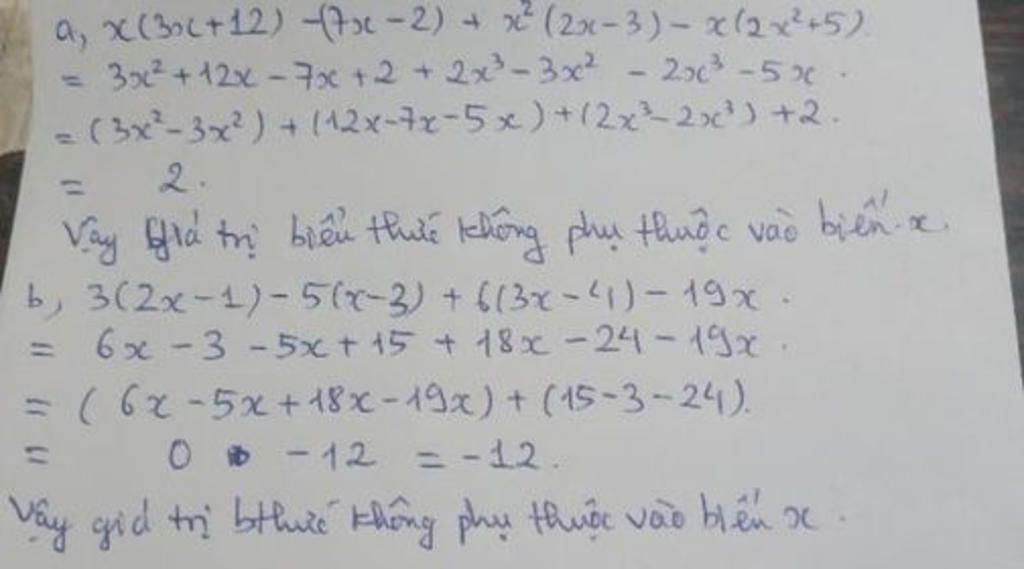 a, x(3x+12) -(7x-2) + x²(2x-3) - x(2x²+5).
= 3x²+12x-7x+2 + 2x³-3x² - 2x³-5x.
= (3x²-3x²) + (12x-7x-5x)+(2x³-2x³) +2.
= 2.
Vậy giá trị biểu thức không phụ thuộc vào biến x.
b, 3(2x-1)-5(x-3) + 6(3x-4) - 19x.
= 6x - 3 - 5x + 15 + 18x - 24 - 19x.
= (6x - 5x + 18x - 19x) + (15-3-24).
= 0 -12 = -12.
Vậy giá trị bthức không phụ thuộc vào biến x.